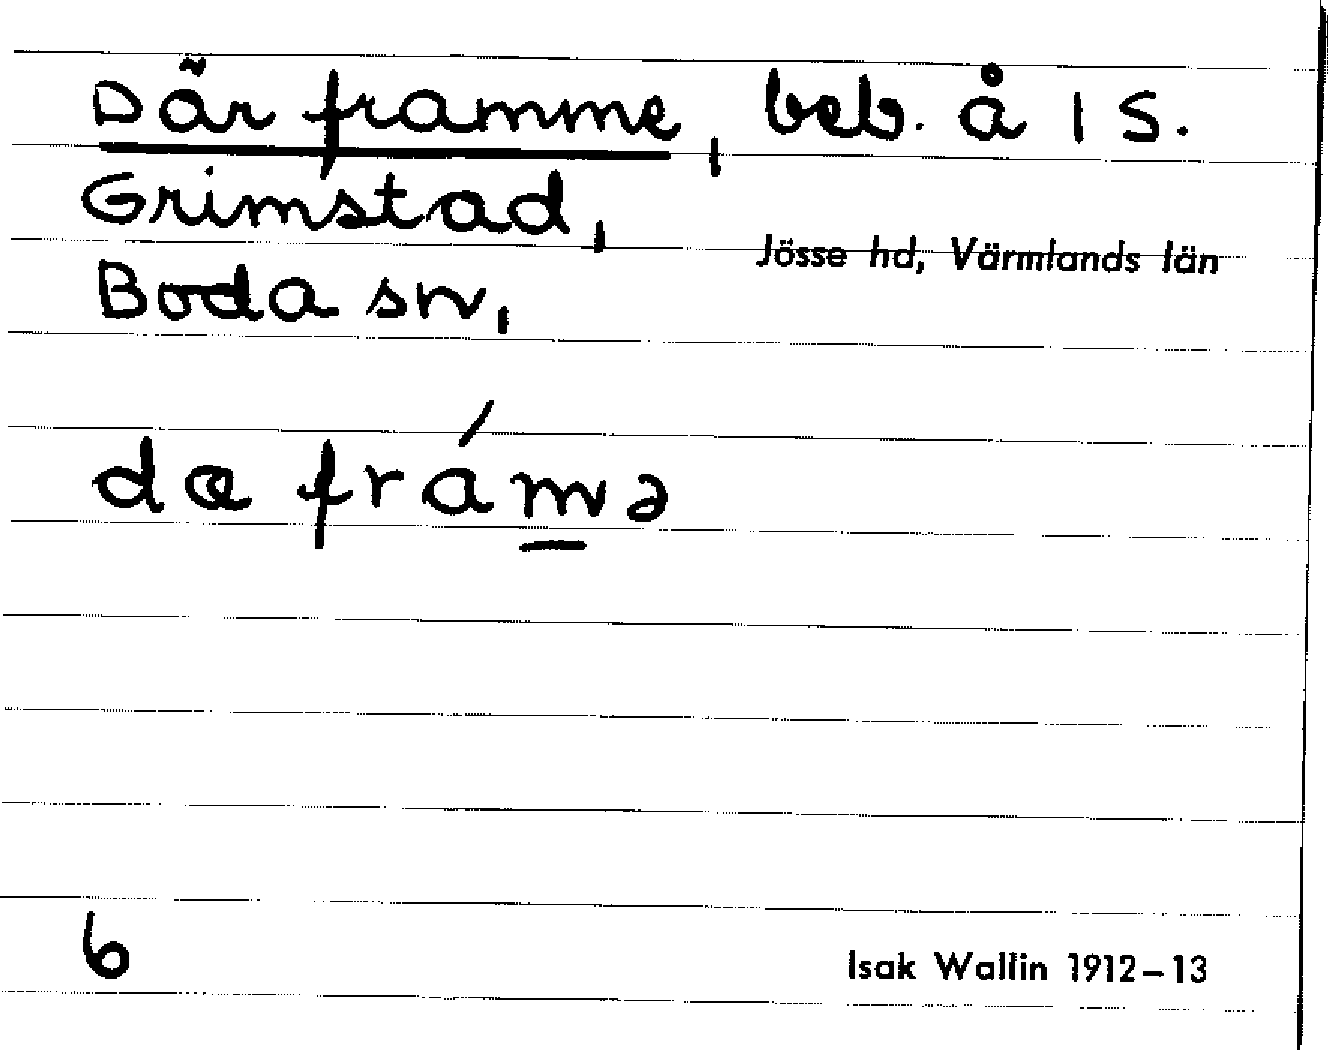 Där framme, beb. å 1 S.
Grimstad,
Jösse hd, Värmlands län
Boda sn,
dæ frámə
6
Isak Wallin 1912–13